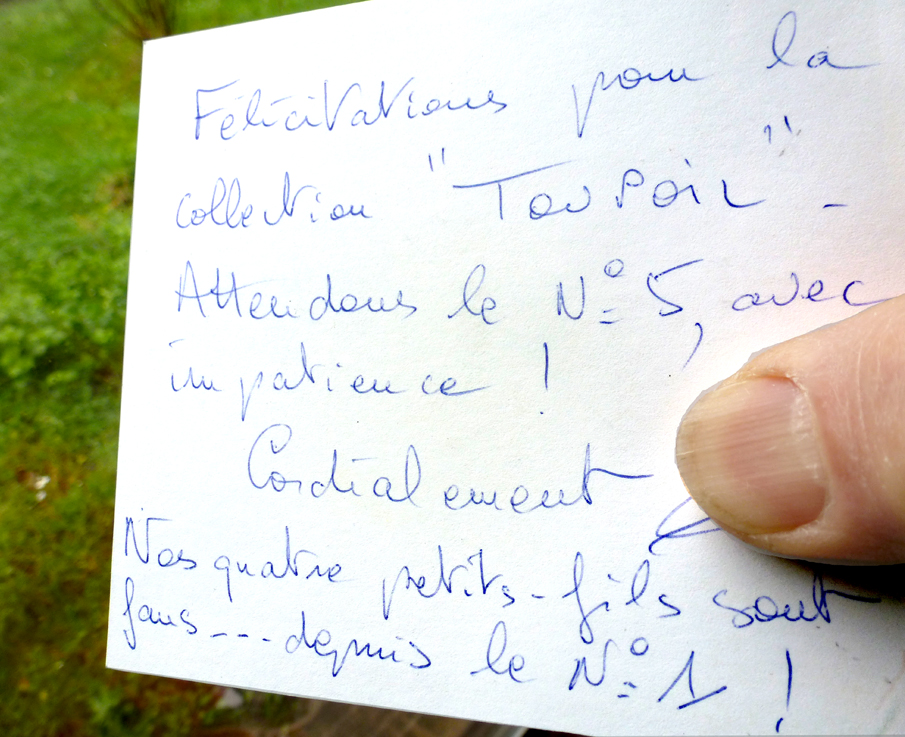 Félicitations pour la
collection "TouPoil" -
Attendons le N° 5, avec
impatience !
Cordialement
Nos quatre petits-fils sont
fans --- depuis le N° 1 !